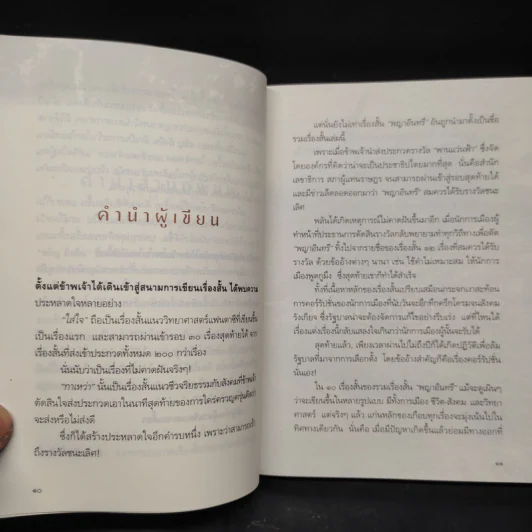 คำนำผู้เขียน
ตั้งแต่ข้าพเจ้าได้เดินเข้าสู่สนามการเขียนเรื่องสั้น ได้พบความ
ประหลาดใจหลายอย่าง
"ใส่ใจ" ถือเป็นเรื่องสั้นแนววิทยาศาสตร์แฟนตาซีที่เขียนขึ้น
เป็นเรื่องแรก และสามารถผ่านเข้ารอบ ๓๐ เรื่องสุดท้ายได้ จาก
เรื่องสั้นที่ส่งเข้าประกวดทั้งหมด ๒๐๐ กว่าเรื่อง
นั่นนับว่าเป็นเรื่องที่ไม่คาดฝันจริงๆ!
"กาเหว่า" นั้นเป็นเรื่องสั้นแนวชีวจริยธรรมกับสังคมที่ข้าพเจ้า
ตัดสินใจส่งประกวดเอาในนาทีสุดท้ายของการใคร่ครวญครุ่นคิดว่า
จะส่งหรือไม่ส่งดี
ซึ่งก็ได้สร้างประหลาดใจอีกคำรบหนึ่ง เพราะว่าสามารถเข้า
ถึงรางวัลชนะเลิศ!
๑๐
แต่นั่นยังไม่เท่าเรื่องสั้น "พญาอินทรี" อันถูกนำมาตั้งเป็นชื่อ
รวมเรื่องสั้นเล่มนี้
เพราะเมื่อข้าพเจ้านำส่งประกวดรางวัล "พานแว่นฟ้า" ซึ่งจัด
โดยองค์กรที่คิดว่าน่าจะเป็นประชาธิปไตยมากที่สุด นั่นคือสำนัก
เลขาธิการ สภาผู้แทนราษฎร จนสามารถผ่านเข้าสู่รอบสุดท้ายได้
และมีข่าวเล็ดลอดออกมาว่า "พญาอินทรี" สมควรได้รับรางวัลชนะ
เลิศ
พลันได้เกิดเหตุการณ์ไม่คาดฝันขึ้นมาอีก เมื่อนักการเมืองผู้
ทำหน้าที่ประธานการตัดสินรางวัลกลับพยายามทำทุกวิถีทางเพื่อตัด
"พญาอินทรี" ทิ้งไปจากรายชื่อของเรื่องสั้น ๑๒ เรื่องที่สมควรได้รับ
รางวัล ด้วยข้ออ้างต่างๆ นานา เช่น ใช้คำไม่เหมาะสม ให้นักการ
เมืองพูดกูมึง ซึ่งสุดท้ายเขาก็ทำได้สำเร็จ
ทั้งที่เนื้อหาหลักของเรื่องสั้นเปรียบเสมือนกระจกเงาสะท้อน
การคอร์รัปชันของนักการเมืองที่นับวันจะฮึกหักครึกโครมจนสังคม
รังเกียจ ซึ่งรัฐบาลน่าจะต้องจัดการแก้ไขอย่างรีบเร่ง แต่ที่ไหนได้
เรื่องแต่งเรื่องนี้กลับแสลงใจเกินกว่านักการเมืองผู้นั้นจะรับได้
สุดท้ายแล้ว เพียงเวลาผ่านไปไม่ถึงปีก็ได้เกิดปฏิวัติเพื่อล้ม
รัฐบาลที่มาจากการเลือกตั้ง โดยข้ออ้างสำคัญก็คือเรื่องคอร์รัปชัน
นั่นเอง!
ใน ๑๐ เรื่องสั้นของรวมเรื่องสั้น "พญาอินทรี" แม้จะดูเผินๆ
ว่าจะเขียนขึ้นในหลายรูปแบบ มีทั้งการเมือง ชีวิต-สังคม และวิทยา
ศาสตร์ แต่จริงๆ แล้ว แก่นหลักของเกือบทุกเรื่องจะมุ่งเน้นไปใน
ทิศทางเดียวกัน นั่นคือ เมื่อมีปัญหาเกิดขึ้นแล้วย่อมมีทางออกที่
๑๑